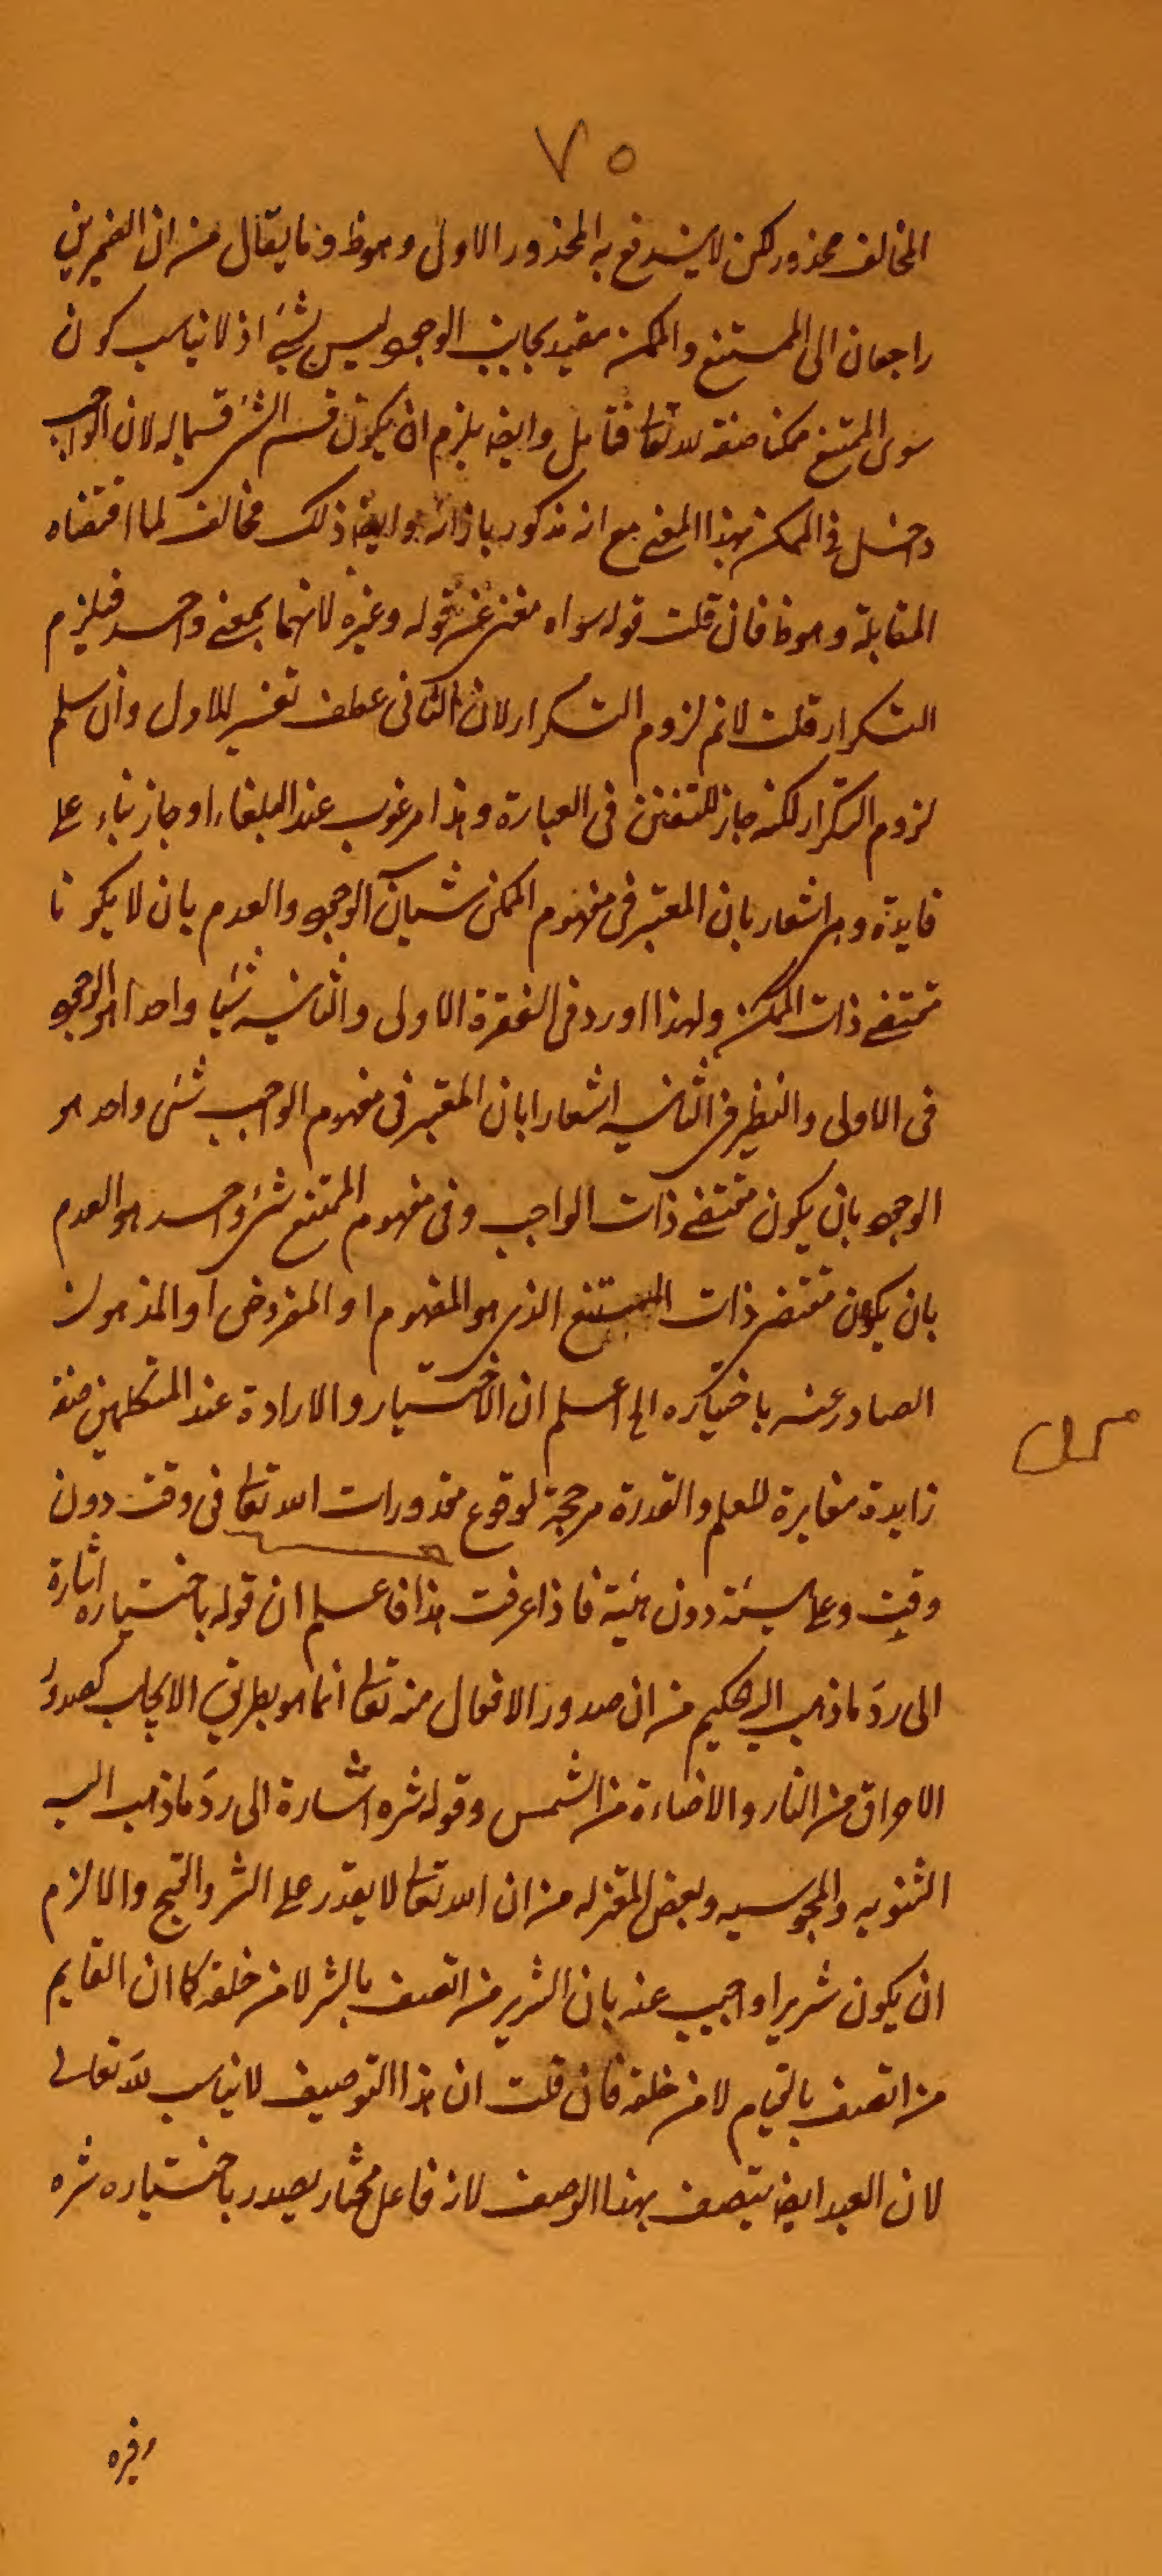 ٧٥
المخالف محذور لكن لا يندفع به المحذور الاولى وهوظ وما يقال من ان الضميرين
راجعان الى الممتنع والممكن مقيد بجانب الوجود ليس بشئ اذ لا يناسب كون
سوى الممتنع ممكنا صفة لله تعا فتأمل وايضا يلزم ان يكون قسم الشئ قسيما له لان الواجب
داخل فى الممكن بهذا المعنى مع انه مذكور بازائه وايضا ذلك مخالف لما اقتضاه
المقابلة وهوظ فان قلت قوله سواه مغن عن قوله وغيره لانهما بمعنى واحد فيلزم
التكرار قلت لانم لزوم التكرار لان الثانى عطف تفسير للاول وان سلم
لزوم التكرار لكنه جاز للتفنن فى العبارة وهذا مرغوب عند البلغاء او جاز بناء على
فايدة وهى اشعار بان المعتبر فى مفهوم الممكن شيئان الوجود والعدم بان لا يكونا
مقتضى ذات الممكن ولهذا اورد فى الفقرة الاولى والثانية شيئا واحدا هو الوجود
فى الاولى والنظير فى الثانية اشعارا بان المعتبر فى مفهوم الواجب شئ واحد هو
الوجود بان يكون مقتضى ذات الواجب وفى مفهوم الممتنع شئ واحد هو العدم
بان يكون مقتضى ذات الممتنع الذى هو المفهوم او المفروض او المذهول
الصادر عنه باختياره الخ اعلم ان الاختيار والارادة عند المتكلمين صفة
زايدة مغايرة للعلم والقدرة مرجحة لوقوع مقدورات الله تعا فى وقت دون
وقت وعلى هيئة دون هيئة فاذا عرفت هذا فاعلم ان قوله باختياره اشارة
الى رد ما ذهب اليه الحكيم من ان صدور الافعال منه تعا انما هو بطريق الايجاب كصدور
الاحراق من النار والاضاءة من الشمس وقوله شره اشارة الى رد ما ذهب اليه
الثنويه والمجوسيه وبعض المعتزله من ان الله تعا لا يقدر على الشر والقبيح والا لزم
ان يكون شريرا واجيب عنه بان الشرير من اتصف بالشر لا من خلقه كما ان القايم
من اتصف بالقيام لا من خلقه فان قلت ان هذا التوصيف لا يناسب لله تعالى
لان العبد ايضا يتصف بهذا الوصف لانه فاعل مختار يصدر باختياره شره